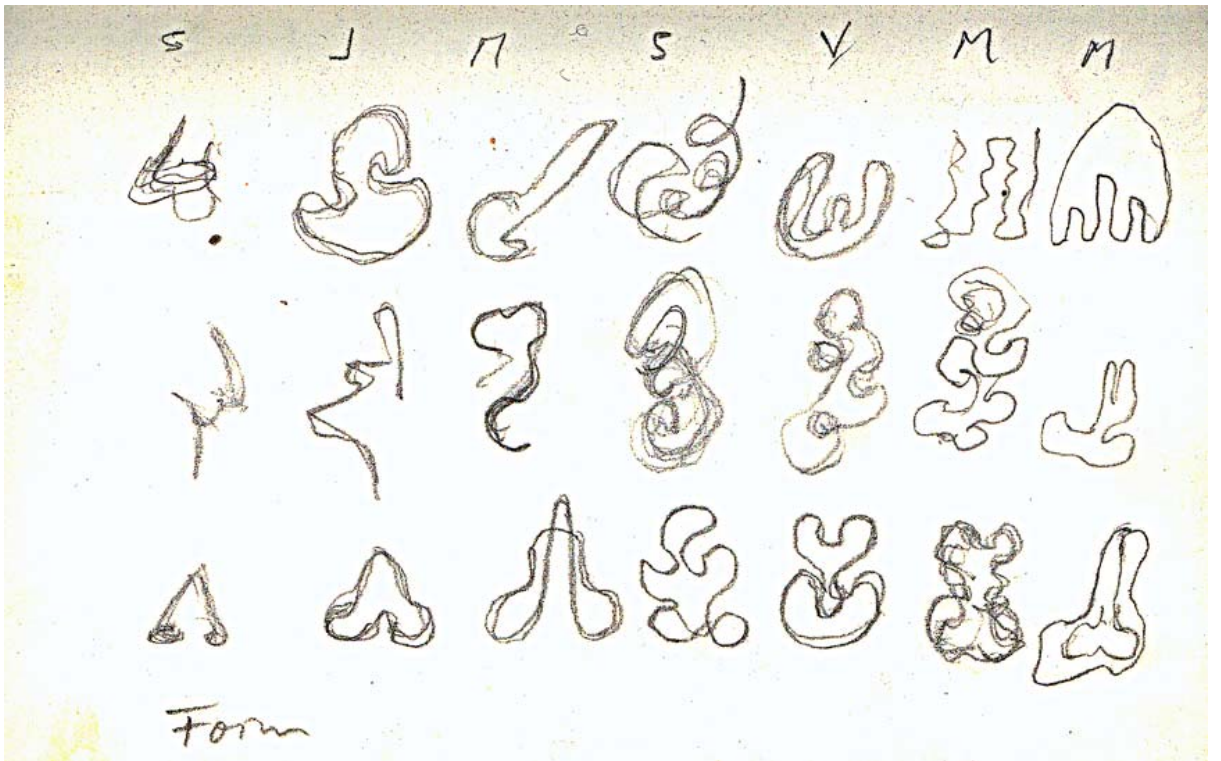 S J M S V M M
Form